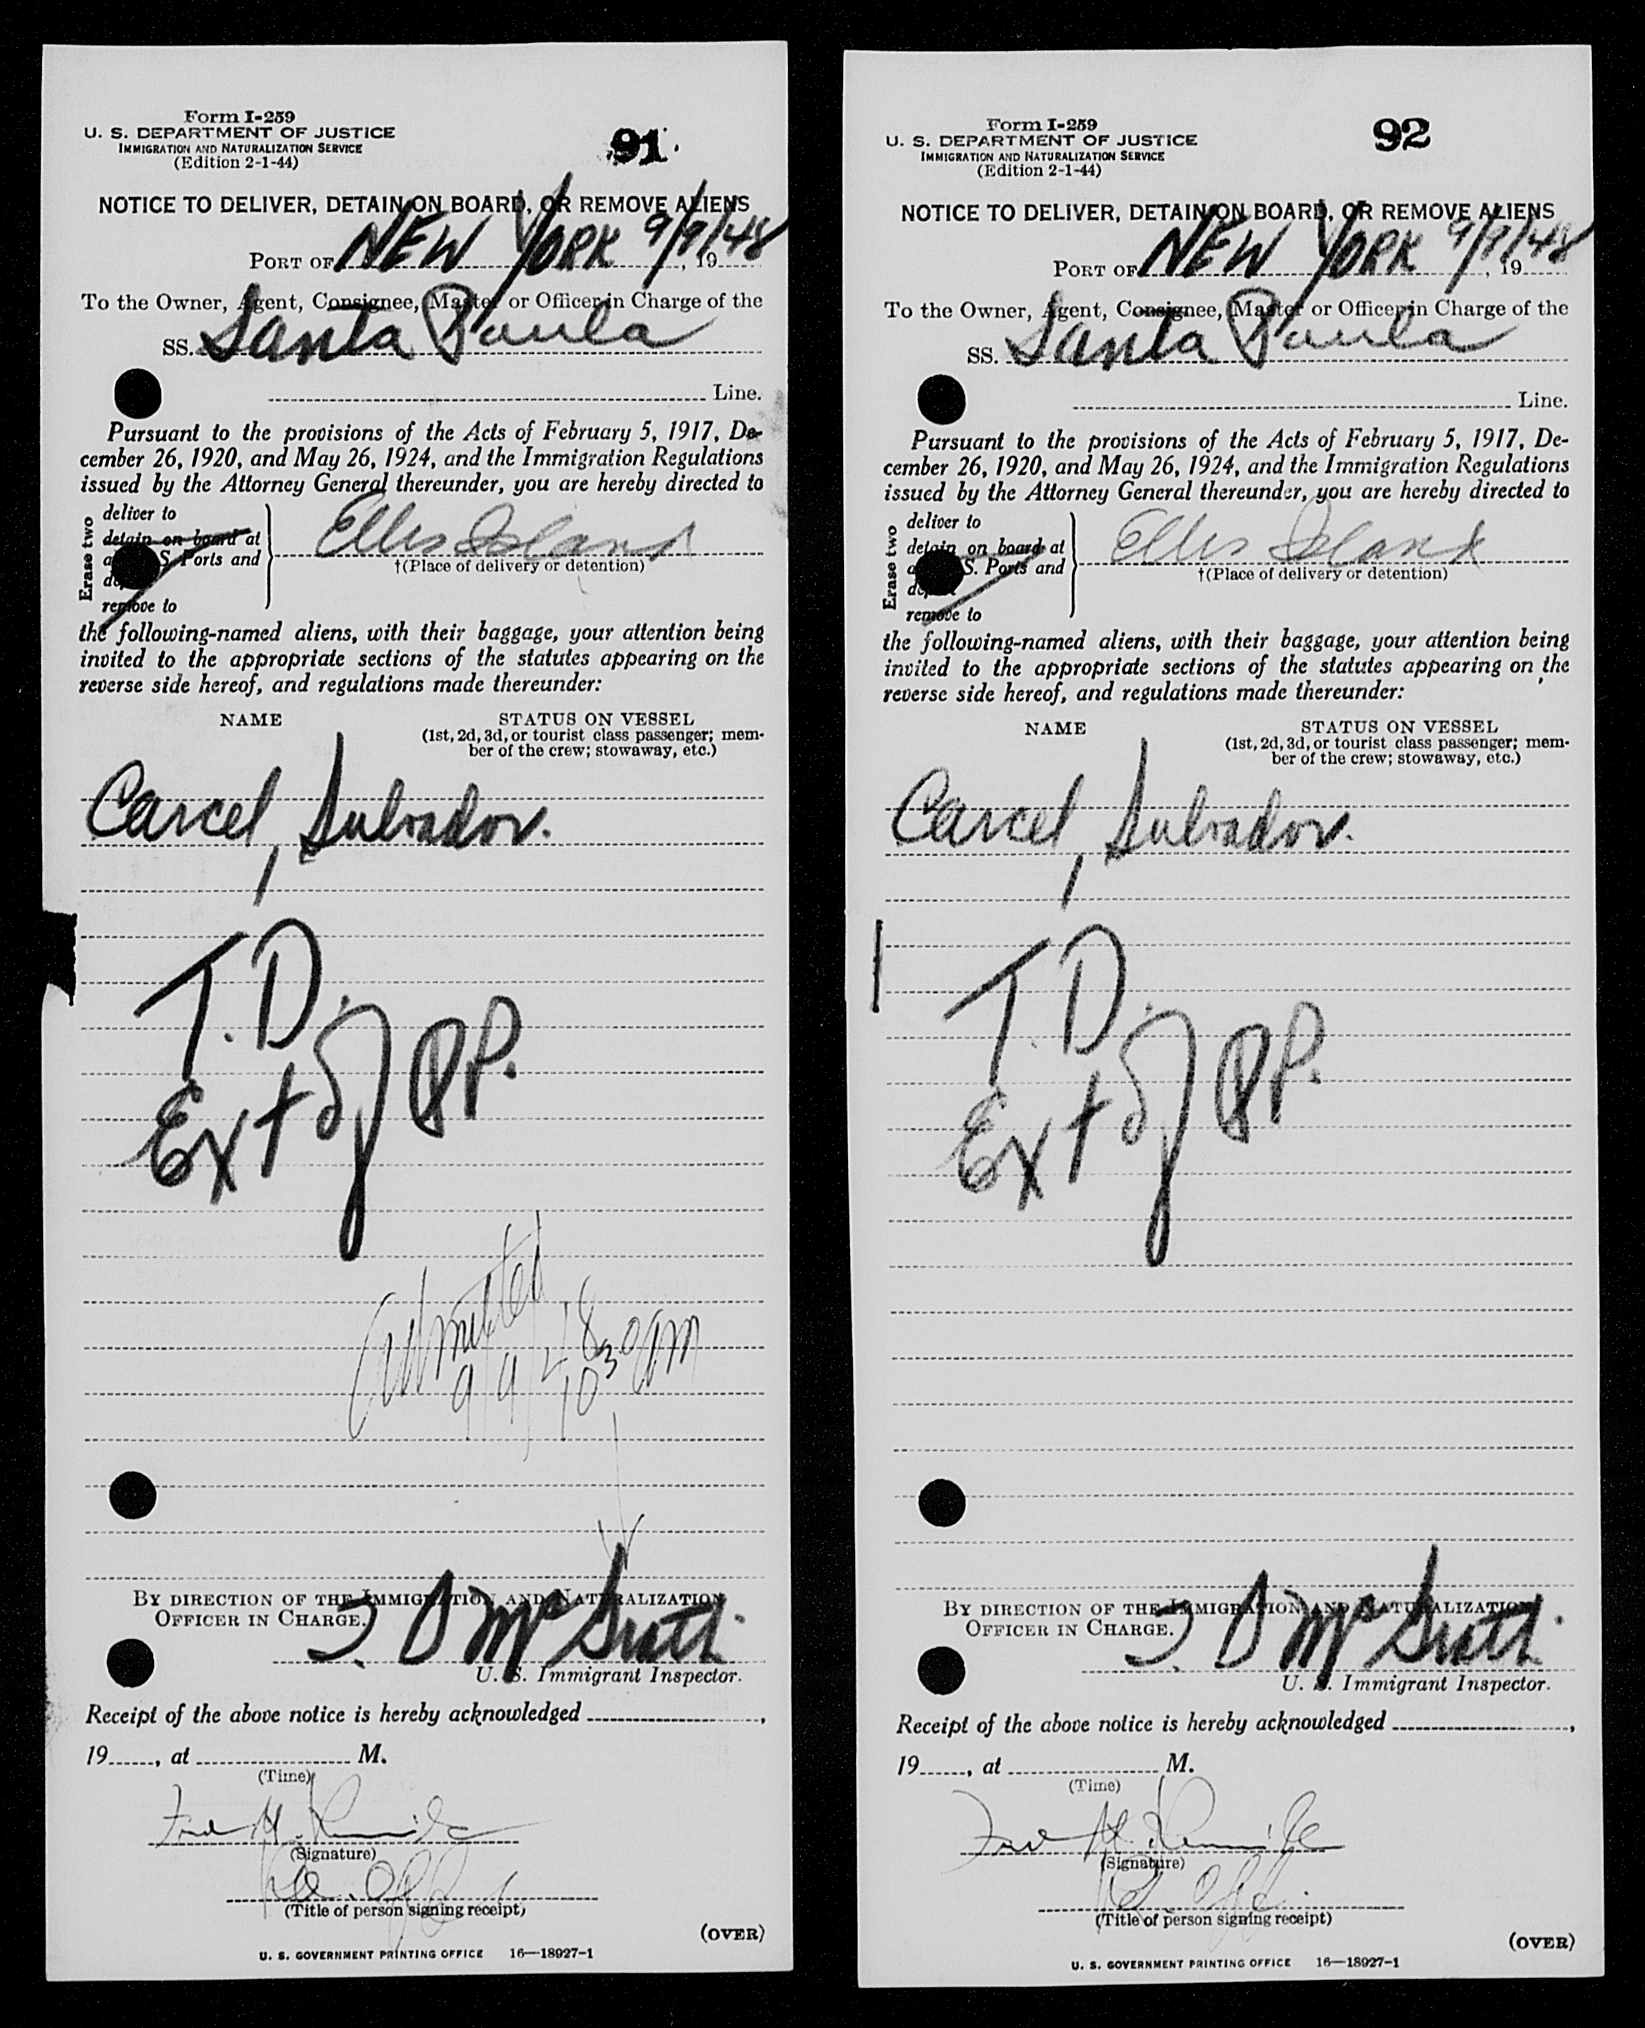 Form I-259
U. S. DEPARTMENT OF JUSTICE
IMMIGRATION AND NATURALIZATION SERVICE
(Edition 2-1-44)
91
NOTICE TO DELIVER, DETAIN ON BOARD, OR REMOVE ALIENS
PORT OF NEW YORK 9/9/48, 19
To the Owner, Agent, Consignee, Master or Officer in Charge of the
SS. Santa Paula
Line.
Pursuant to the provisions of the Acts of February 5, 1917, De-
cember 26, 1920, and May 26, 1924, and the Immigration Regulations
issued by the Attorney General thereunder, you are hereby directed to
Erase two
deliver to
detain on board at
S. Ports and
remove to
Ellis Island
†(Place of delivery or detention)
the following-named aliens, with their baggage, your attention being
invited to the appropriate sections of the statutes appearing on the
reverse side hereof, and regulations made thereunder:
NAME
STATUS ON VESSEL
(1st, 2d, 3d, or tourist class passenger; mem-
ber of the crew; stowaway, etc.)
Carcel, Salvador.
T.D.
Ext of PP.
Admitted
9/9/48
10 30 am
BY DIRECTION OF THE IMMIGRATION AND NATURALIZATION
OFFICER IN CHARGE.
McGrath
U. S. Immigrant Inspector.
Receipt of the above notice is hereby acknowledged ,
19 , at M.
(Time)
Fred H.
(Signature)
(Title of person signing receipt)
(OVER)
U. S. GOVERNMENT PRINTING OFFICE 16—18927-1
Form I-259
U. S. DEPARTMENT OF JUSTICE
IMMIGRATION AND NATURALIZATION SERVICE
(Edition 2-1-44)
92
NOTICE TO DELIVER, DETAIN ON BOARD, OR REMOVE ALIENS
PORT OF NEW YORK 9/9/48, 19
To the Owner, Agent, Consignee, Master or Officer in Charge of the
SS. Santa Paula
Line.
Pursuant to the provisions of the Acts of February 5, 1917, De-
cember 26, 1920, and May 26, 1924, and the Immigration Regulations
issued by the Attorney General thereunder, you are hereby directed to
Erase two
deliver to
detain on board at
S. Ports and
remove to
Ellis Island
†(Place of delivery or detention)
the following-named aliens, with their baggage, your attention being
invited to the appropriate sections of the statutes appearing on the
reverse side hereof, and regulations made thereunder:
NAME
STATUS ON VESSEL
(1st, 2d, 3d, or tourist class passenger; mem-
ber of the crew; stowaway, etc.)
Carcel, Salvador.
T.D.
Ext of PP.
BY DIRECTION OF THE IMMIGRATION AND NATURALIZATION
OFFICER IN CHARGE.
McGrath
U. S. Immigrant Inspector.
Receipt of the above notice is hereby acknowledged ,
19 , at M.
(Time)
Fred H.
(Signature)
(Title of person signing receipt)
(OVER)
U. S. GOVERNMENT PRINTING OFFICE 16—18927-1